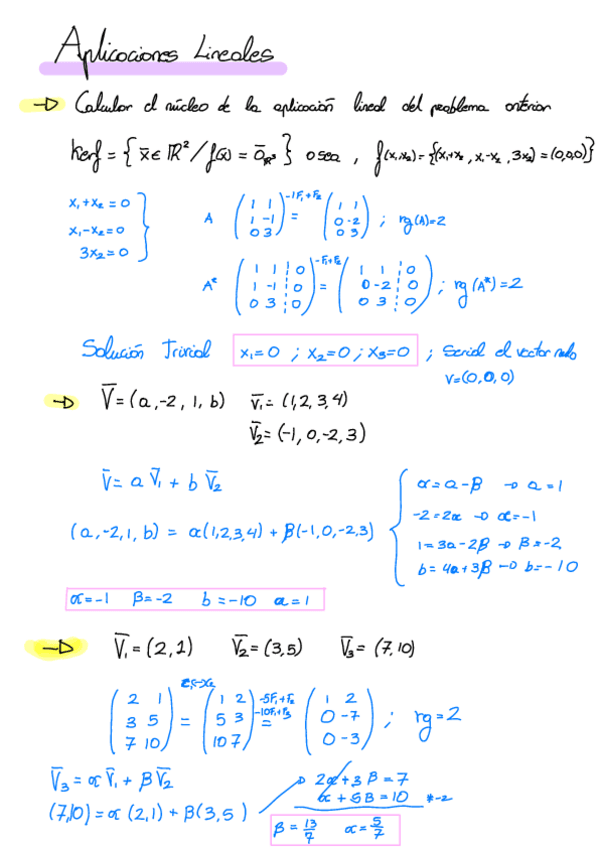 Aplicaciones Lineales
→ Calcular el núcleo de la aplicación lineal del problema anterior
Kerf = { x̄ ∈ ℝ² / f(x) = ō_ℝ³ } o sea , f(x₁,x₂) = {(x₁+x₂ , x₁-x₂ , 3x₂) = (0,0,0)}
x₁+x₂ = 0
x₁-x₂ = 0
3x₂ = 0
A ( 1 1 ; 1 -1 ; 0 3 ) -1F₁+F₂ = ( 1 1 ; 0 -2 ; 0 3 ) ; rg(A)=2
A* ( 1 1 | 0 ; 1 -1 | 0 ; 0 3 | 0 ) -F₁+F₂ = ( 1 1 | 0 ; 0 -2 | 0 ; 0 3 | 0 ) ; rg(A*)=2
Solución Trivial x₁=0 ; x₂=0 ; x₃=0 ; Serial el vector nulo
v=(0,0,0)
→ V̄ = (a,-2, 1, b) V̄₁ = (1,2,3,4)
V̄₂ = (-1, 0, -2, 3)
V̄ = a V̄₁ + b V̄₂
(a,-2,1, b) = α(1,2,3,4) + β(-1,0,-2,3)
α = a - β → a = 1
-2 = 2α → α = -1
1 = 3α - 2β → β = -2
b = 4α + 3β → b = -10
α = -1 β = -2 b = -10 a = 1
→ V̄₁ = (2,1) V̄₂ = (3,5) V̄₃ = (7,10)
( 2 1 ; 3 5 ; 7 10 ) = ( 1 2 ; 5 3 ; 10 7 ) -5F₁+F₂ -10F₁+F₃ = ( 1 2 ; 0 -7 ; 0 -3 ) ; rg=2
V̄₃ = α V̄₁ + β V̄₂
(7,10) = α (2,1) + β(3,5)
2α + 3β = 7
α + 5β = 10 *-2
β = 13/7 α = 5/7